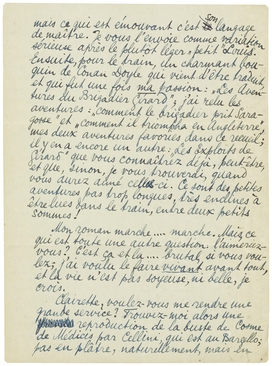 mais ce qui est émouvant c'est son langage
de maître. Je vous l'envoie comme
sérieuse après le plutôt léger "petit Louis".
Ensuite, pour le train, un charmant bou-
quin de Conan Doyle qui vient d'être traduit
et qui fut une fois ma passion: "Les Aven-
tures du Brigadier Gérard"; j'ai relu les
aventures: "Comment le brigadier prit Sara-
gosse" et "comment il triompha en Angleterre",
mes deux aventures favorites dans ce recueil;
il y en a encore un autre: "Les Exploits de
Gérard" que vous connaîtrez déjà, peut-être,
et que, sinon, je vous trouverai, quand
vous aurez aimé celui-ci. Ce sont des petites
aventures pas trop longues, très enclines à
être lues dans le train, entre deux petits
sommes!
Mon roman marche.... marche. Mais ce
qui est toute une autre question: l'aimerez-
vous? C'est ça et là.... brutal, si vous vou-
lez; j'ai voulu le faire vivant avant tout,
et la vie n'est pas soyeuse, ni belle, je
crois.
Clairette, voulez-vous me rendre une
grande service? Trouvez-moi alors une
reproduction de la buste de Cosme
de Médicis par Cellini, qui est au Bargello;
pas en plâtre, naturellement, mais en